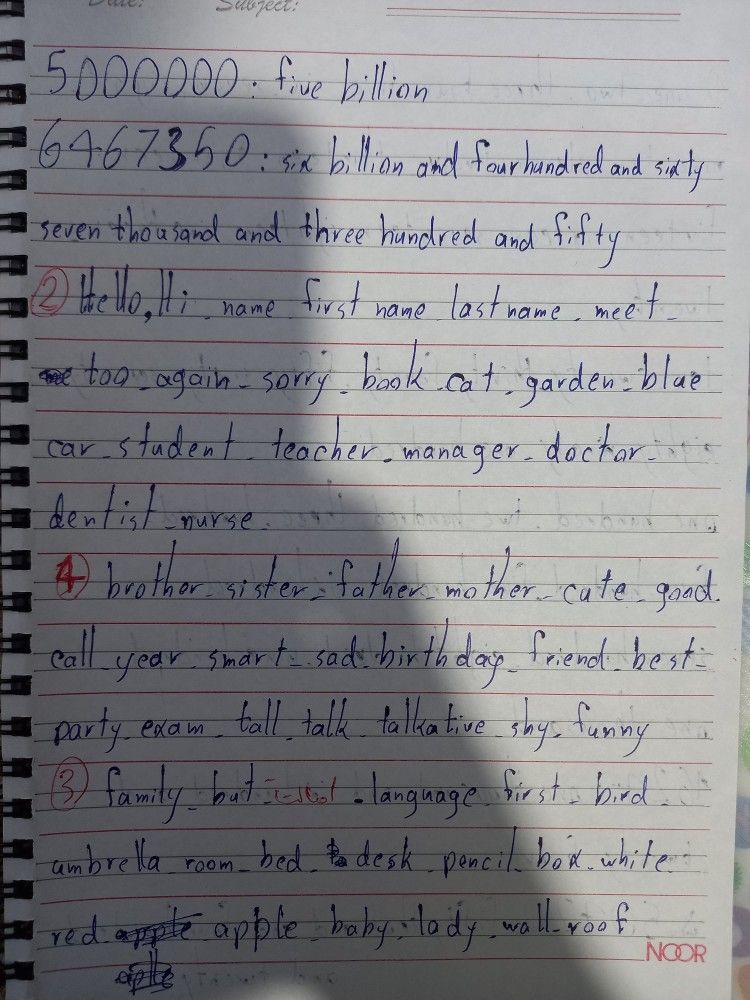 Date: Subject:
5000000: five billion
6467350: six billion and four hundred and sixty
seven thousand and three hundred and fifty
② Hello, Hi _ name _ first name _ last name _ meet _
too _ again _ sorry _ book _ cat _ garden _ blue
car _ student _ teacher _ manager _ doctor _
dentist _ nurse _
4 brother _ sister _ father _ mother _ cute _ good _
call _ year _ smart _ sad _ birthday _ friend _ best _
party _ exam _ tall _ talk _ talkative _ shy _ funny
③ family _ but _ _ language _ first _ bird _
umbrella _ room _ bed _ desk _ pencil _ box _ white _
red _ apple _ baby _ lady _ wall _ roof
NOOR